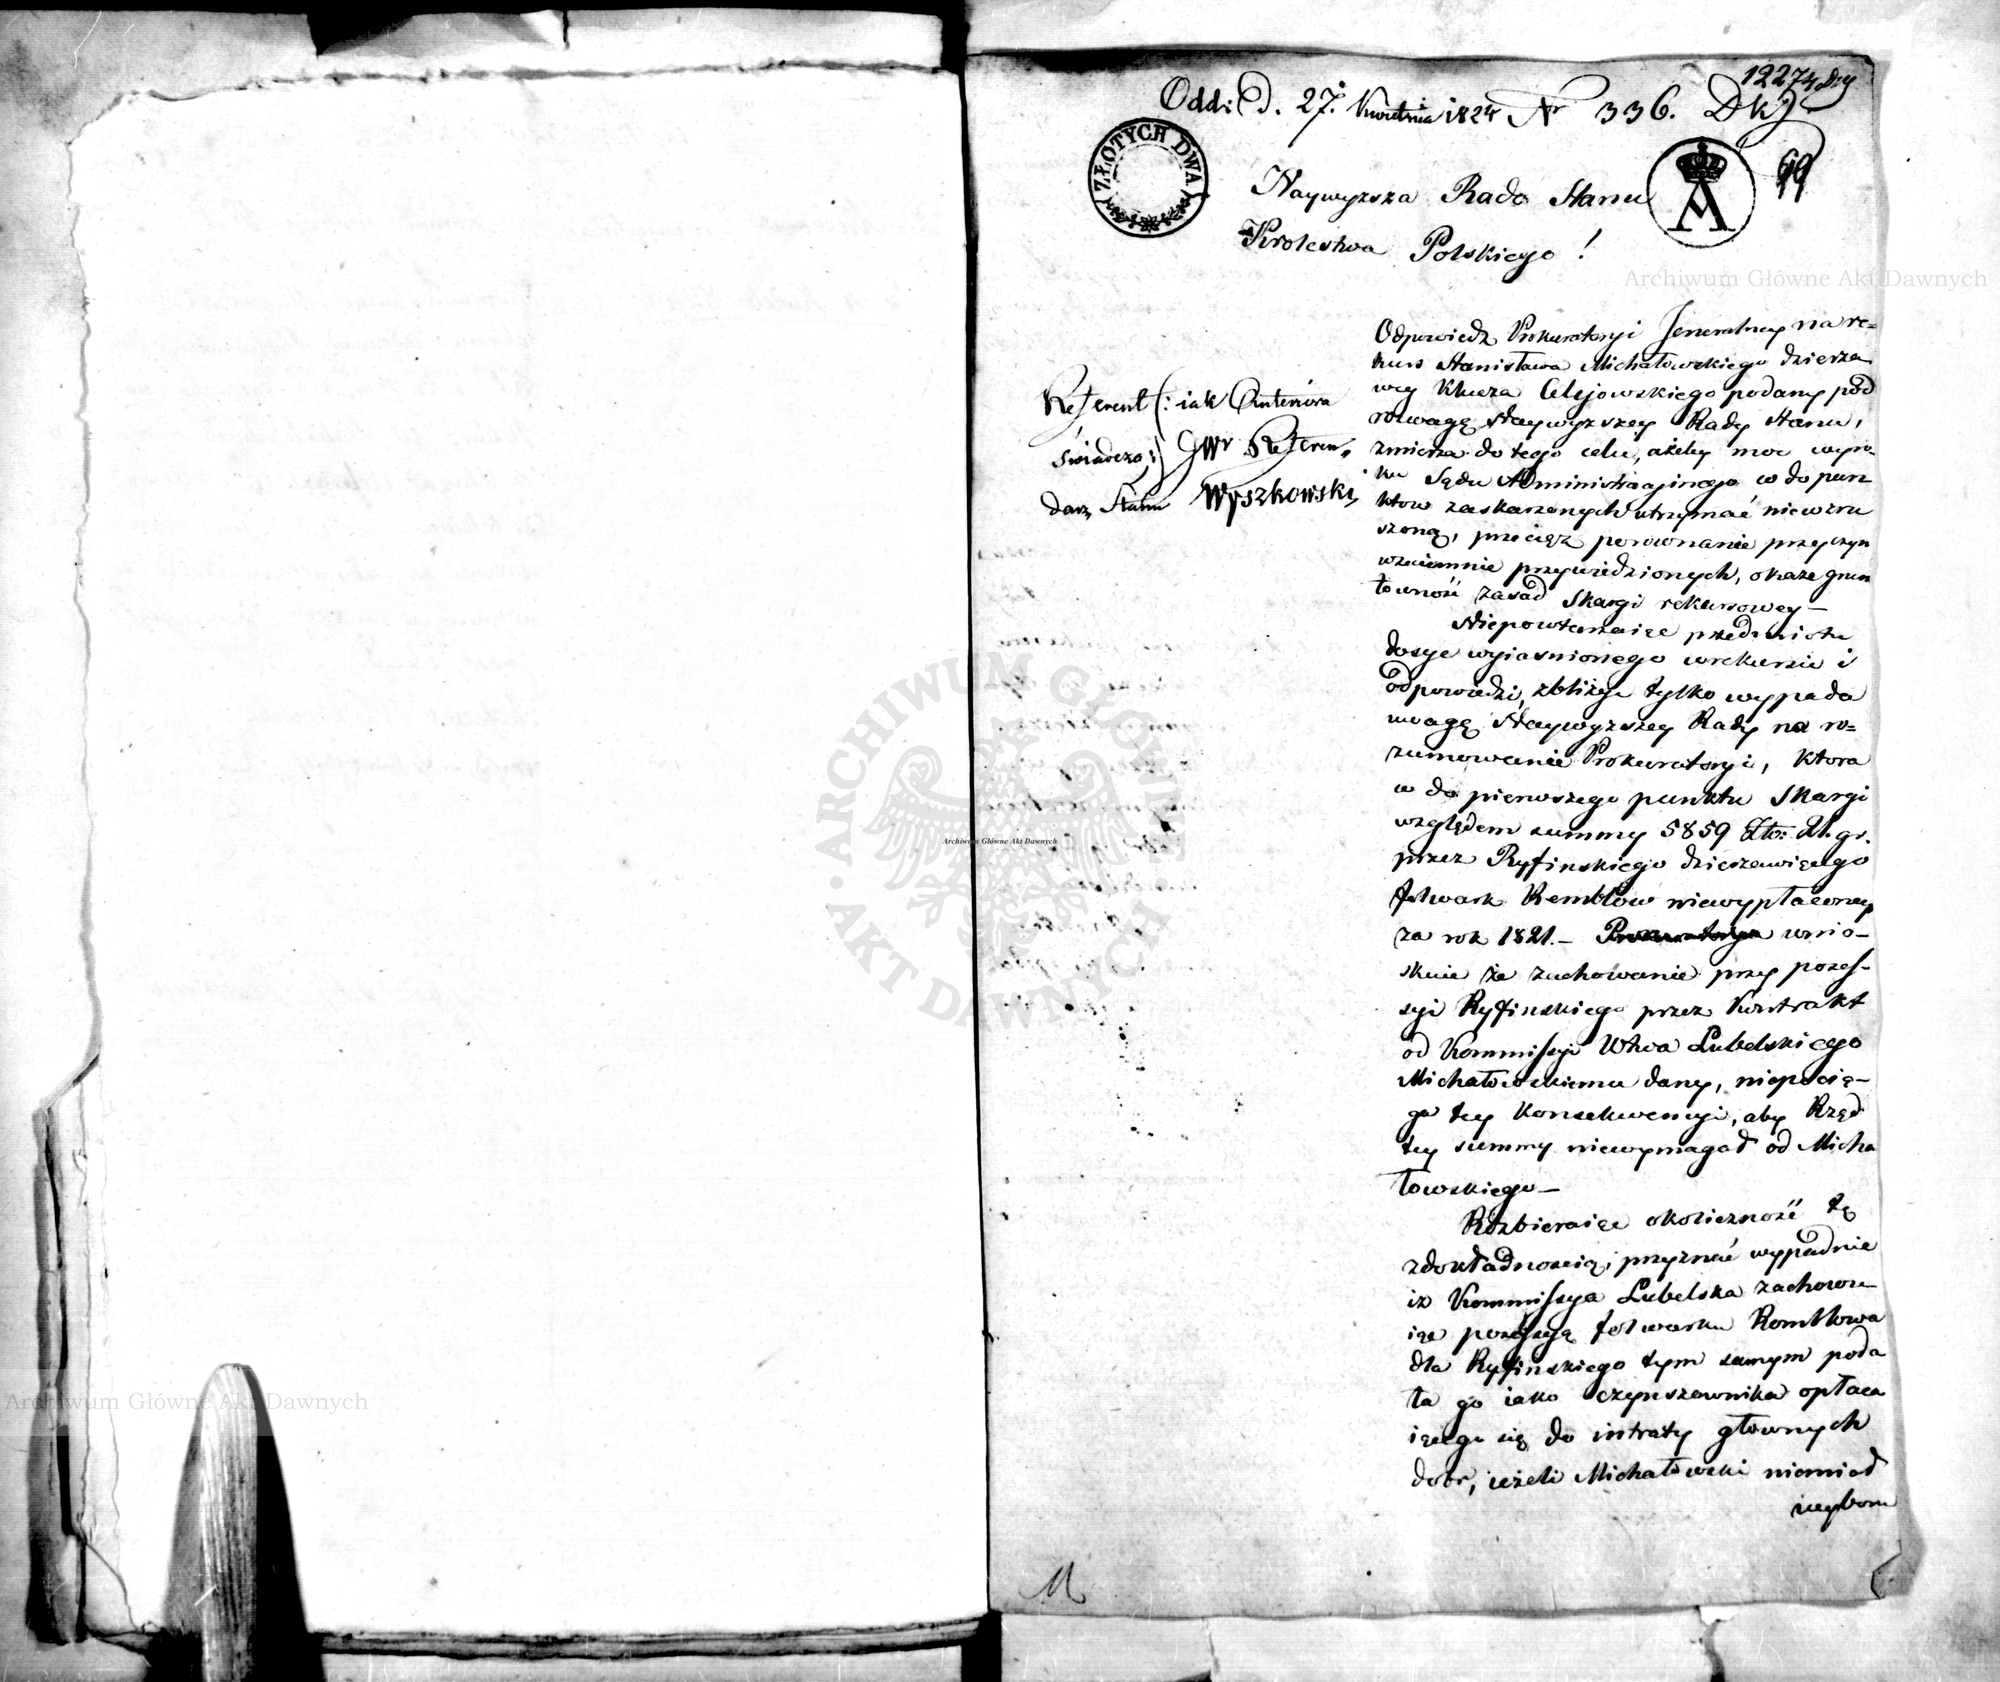 12274 Dzy
Odd: D. 27. Kwietnia 1824 Nr 336. Dkj
ZŁOTYCH DWA
A
69
Naywyzsza Rado Stanu
Krolestwa Polskiego!
Archiwum Główne Akt Dawnych
Referent (: iak Anteriora
świadczą :) JWr Referen.
darz Stanu Wyszkowski
Odpowiedz Prokuratoryi Jeneralney na re=
kurs Stanisława Michałowskiego dzierza
wcy Klucza Celejowskiego podany pod
rozwagę Naywyzszey Rady Stanu,
zmierza do tego celu, ażeby moc wyro
ku Sądu Administracyjnego w do pun
ktow zaskarzonych utrzymać niewzru
szoną, przecięż porownanie przyczyn
wzaiemnie przywiedzionych, okaze grun
towność zasad Skargi rekursowey —
Niepowtarzaiąc przedmiotu
dosyc wyiasnionego w rekursie i
odpowiedzi, zbliżyć tylko wypada
uwagę Naywyzszey Rady na ro=
zumowanie Prokuratoryi, ktora
w do pierwszego punktu Skargi
względem summy 5859 Złt: 21. gr.
przez Ryfinskiego dzierzawiącego
folwark Rembłow niewypłaconey
za rok 1821. — Prokuratorya wnio-
skuie że zachowanie przy poses-
syi Ryfinskiego przez Kontrakt
od Kommissyi Wtwa Lubelskiego
Michałowskiemu dany, niepocią-
ga tey konsekwencyi, aby Rząd
tey summy niewymagał od Micha
łowskiego —
Rozbieraiąc okoliczność tę
zdokładnoscią, przyznać wypadnie
iz Kommissya Lubelska zachowu-
iąc possessyą folwarku Rembłowa
dla Ryfinskiego tym samym poda
ła go iako czynszownika opłaca
iącego się do intraty głownych
dobr, ieżeli Michałowski niemiał
ARCHIWUM GŁÓWNE
AKT DAWNYCH
Archiwum Główne Akt Dawnych
Archiwum Główne Akt Dawnych
M